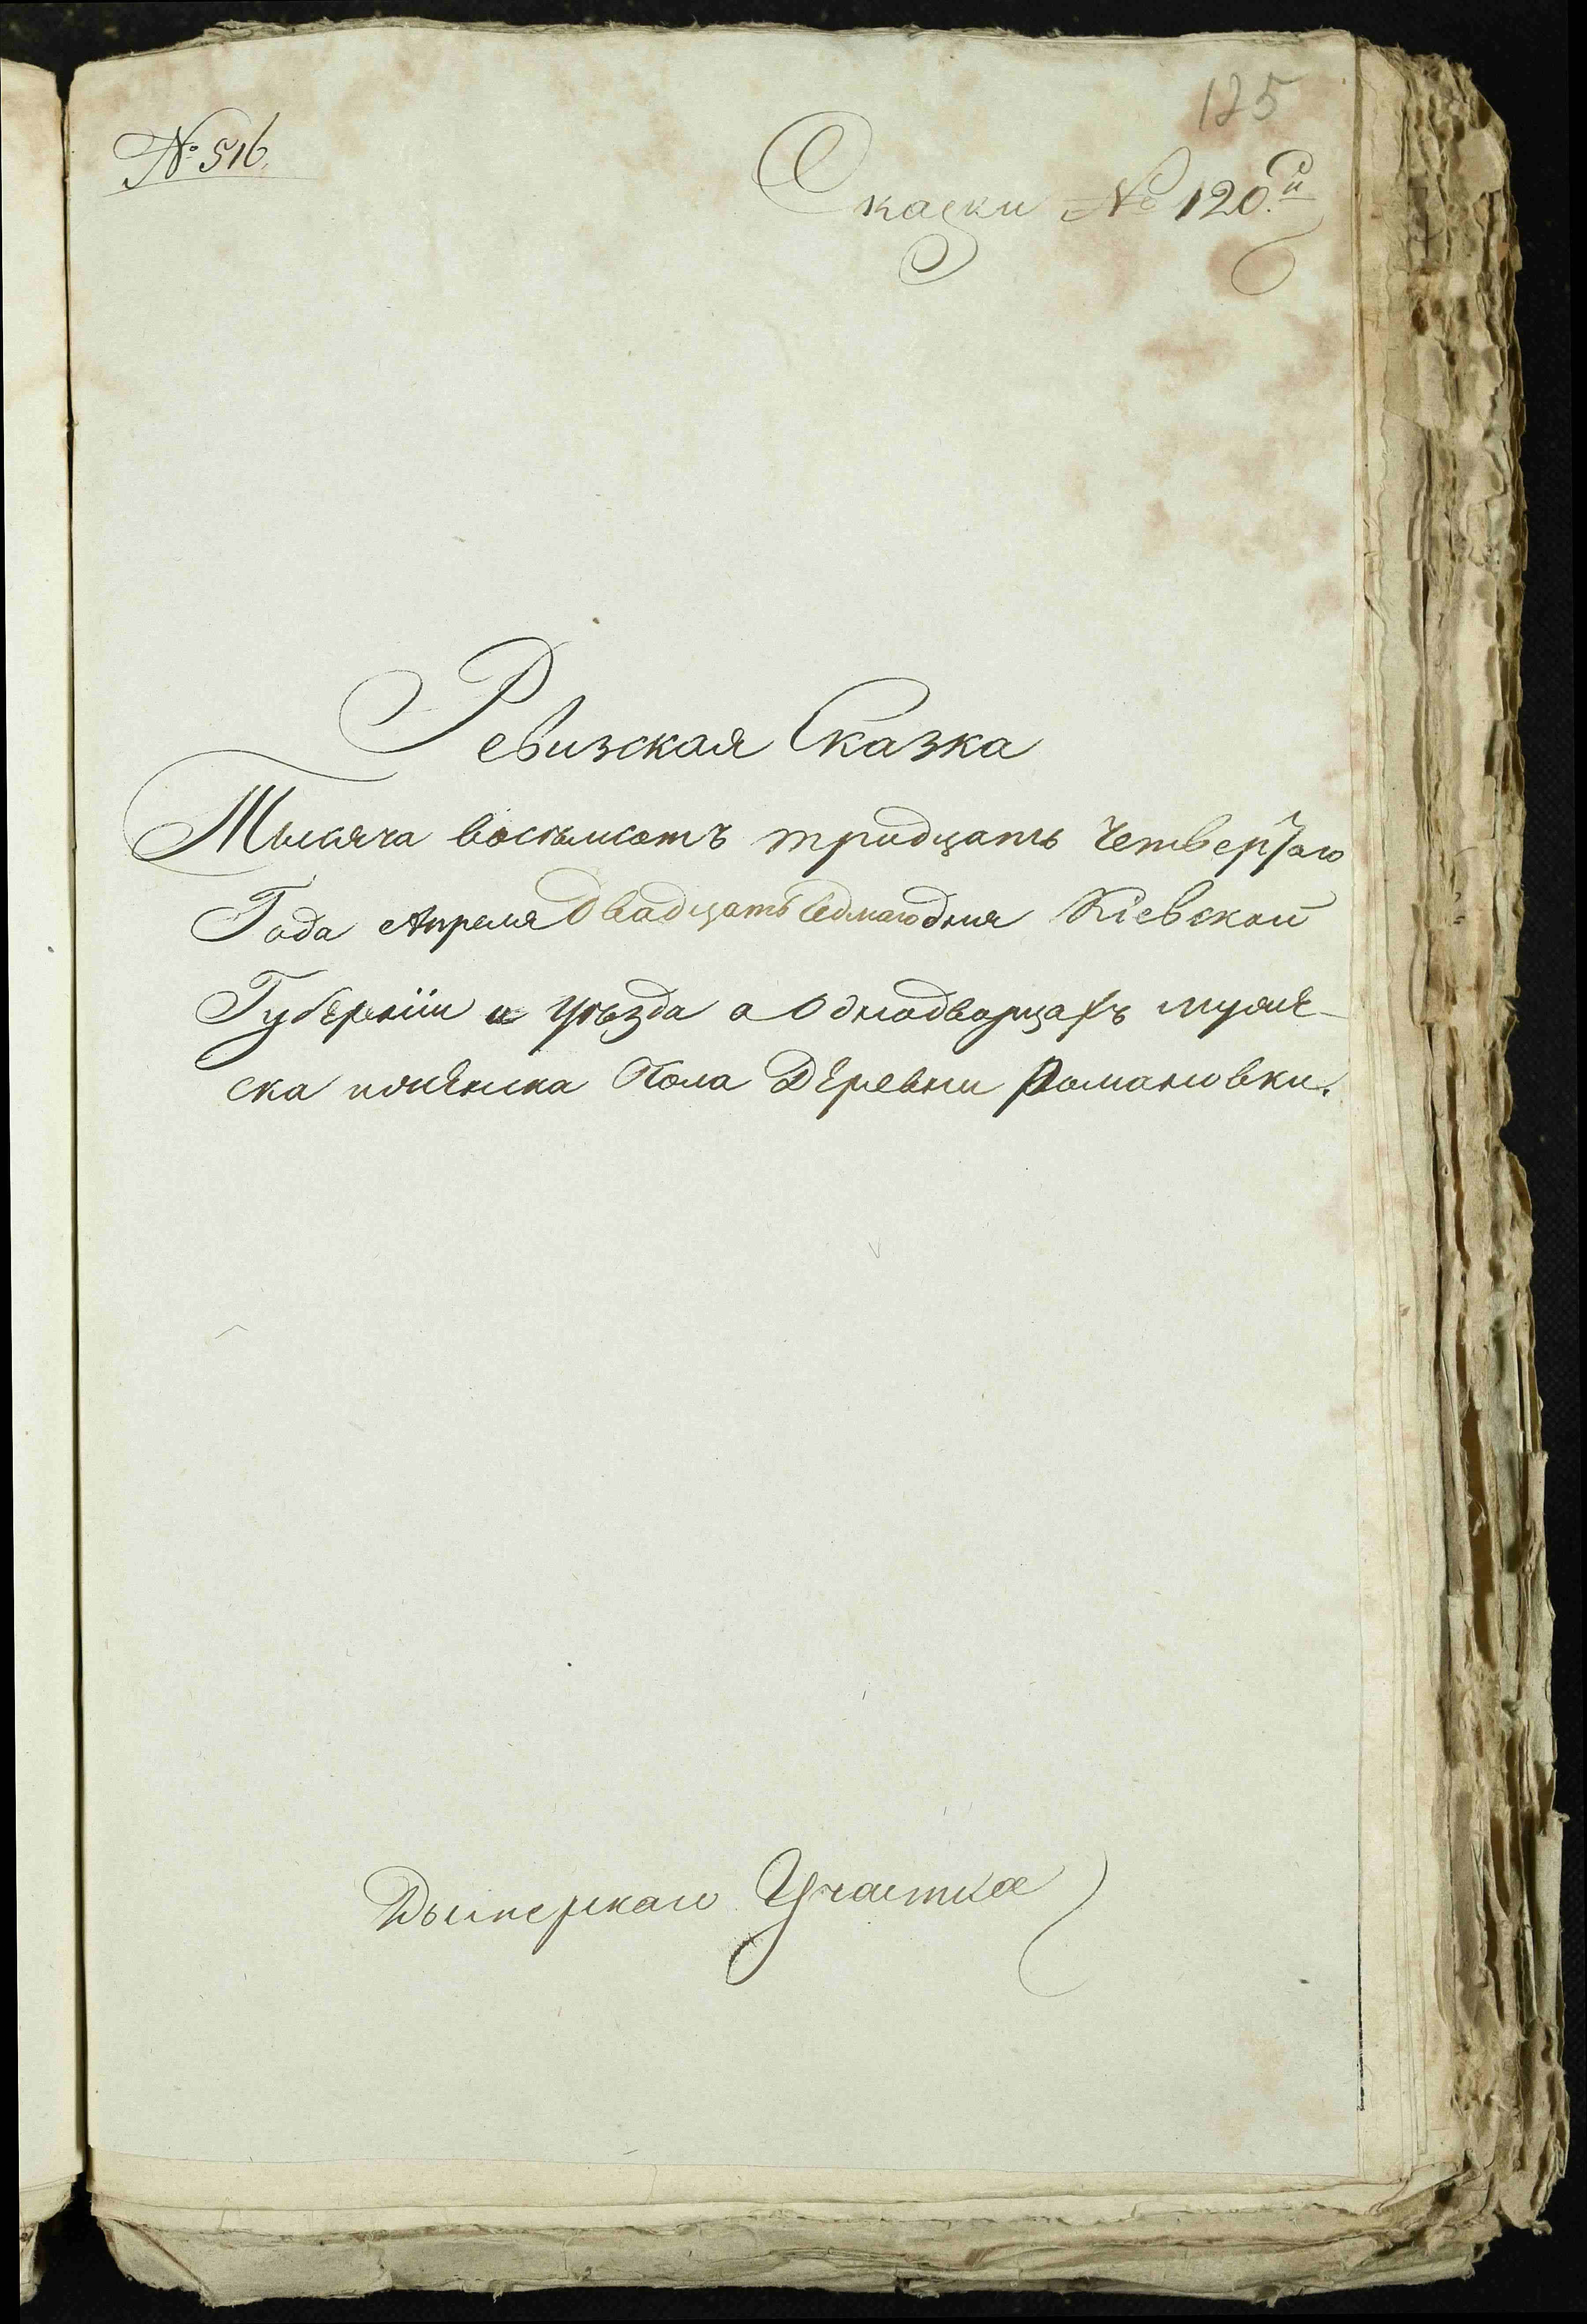 125
№ 516.
Сказки № 120.й
Ревизская Сказка
Тысяча восѣмсотъ тридцать Четвертаго
Года Апреля Двадцать Седмаго дня Кіевской
Губерніи и уѣзда о Однодворцахъ муже-
ска и женска Пола Деревни Романовки.
Дымерскаго Участка